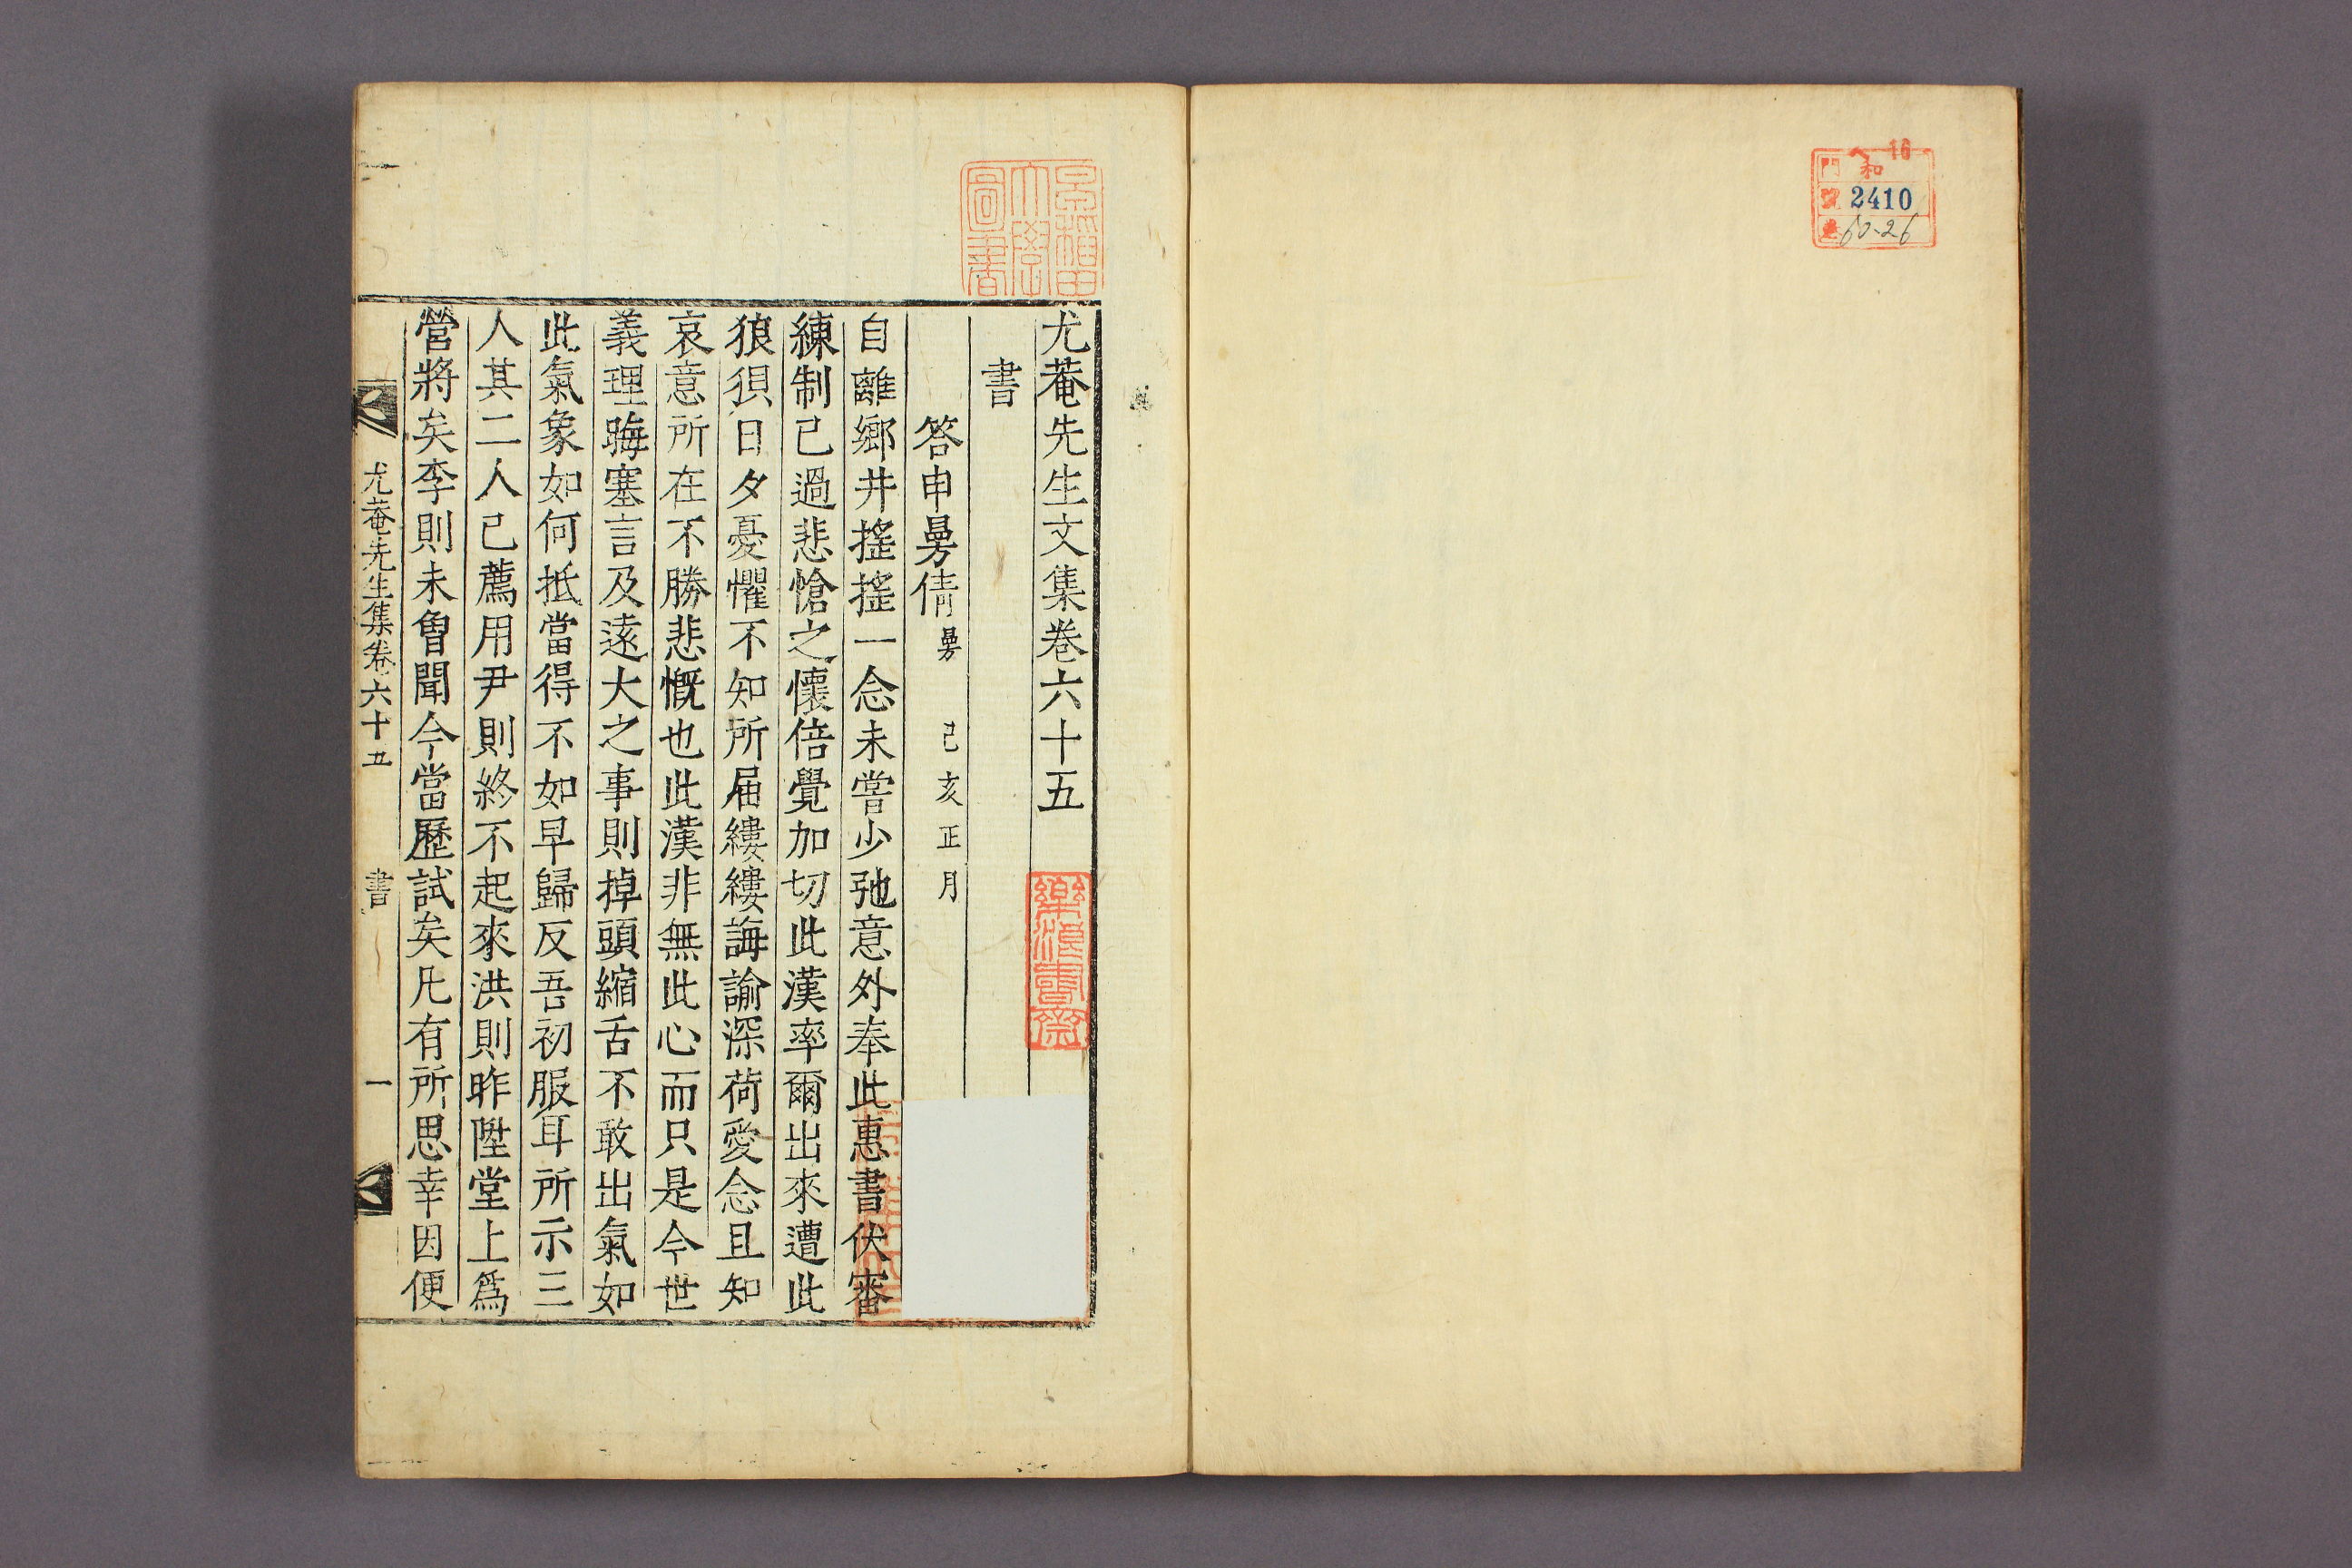 16
和
門
號 2410
卷 60-26
早稻田
大學
圖書
尤菴先生文集卷六十五
樂浪書齋
書
答申㬅倩㬅 己亥正月
自離鄉井搖搖一念未嘗少弛意外奉此惠書伏審
練制已過悲愴之懷倍覺加切此漢率爾出來遭此
狼狽日夕憂懼不知所届縷縷誨諭深荷愛念且知
哀意所在不勝悲慨也此漢非無此心而只是今世
義理晦塞言及遠大之事則掉頭縮舌不敢出氣如
此氣象如何抵當得不如早歸反吾初服耳所示三
人其二人已薦用尹則終不起來洪則昨陞堂上爲
營將矣李則未曾聞今當歷試矣凡有所思幸因便
尤菴先生集卷六十五 書 一